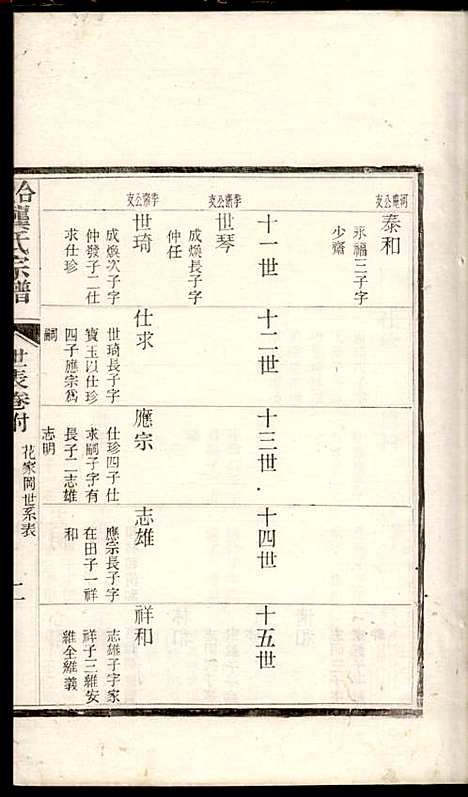 河廕公支
泰和
永福三子字
少齋
十一世
十二世
十三世
十四世
十五世
季齋公支
世琴
成燦長子字
仲任
季齋公支
世琦
成燦次子字
仲發子二仕
求仕珍
仕求
世琦長子字
寶玉以仕珍
四子應宗爲
嗣
應宗
仕珍四子仕
求嗣子字有
長子二志雄
志明
志雄
應宗長子字
在田子一祥
和
祥和
志雄子字家
祥子三維安
維全維義
龍氏宗譜
世表卷附
花家岡世系表